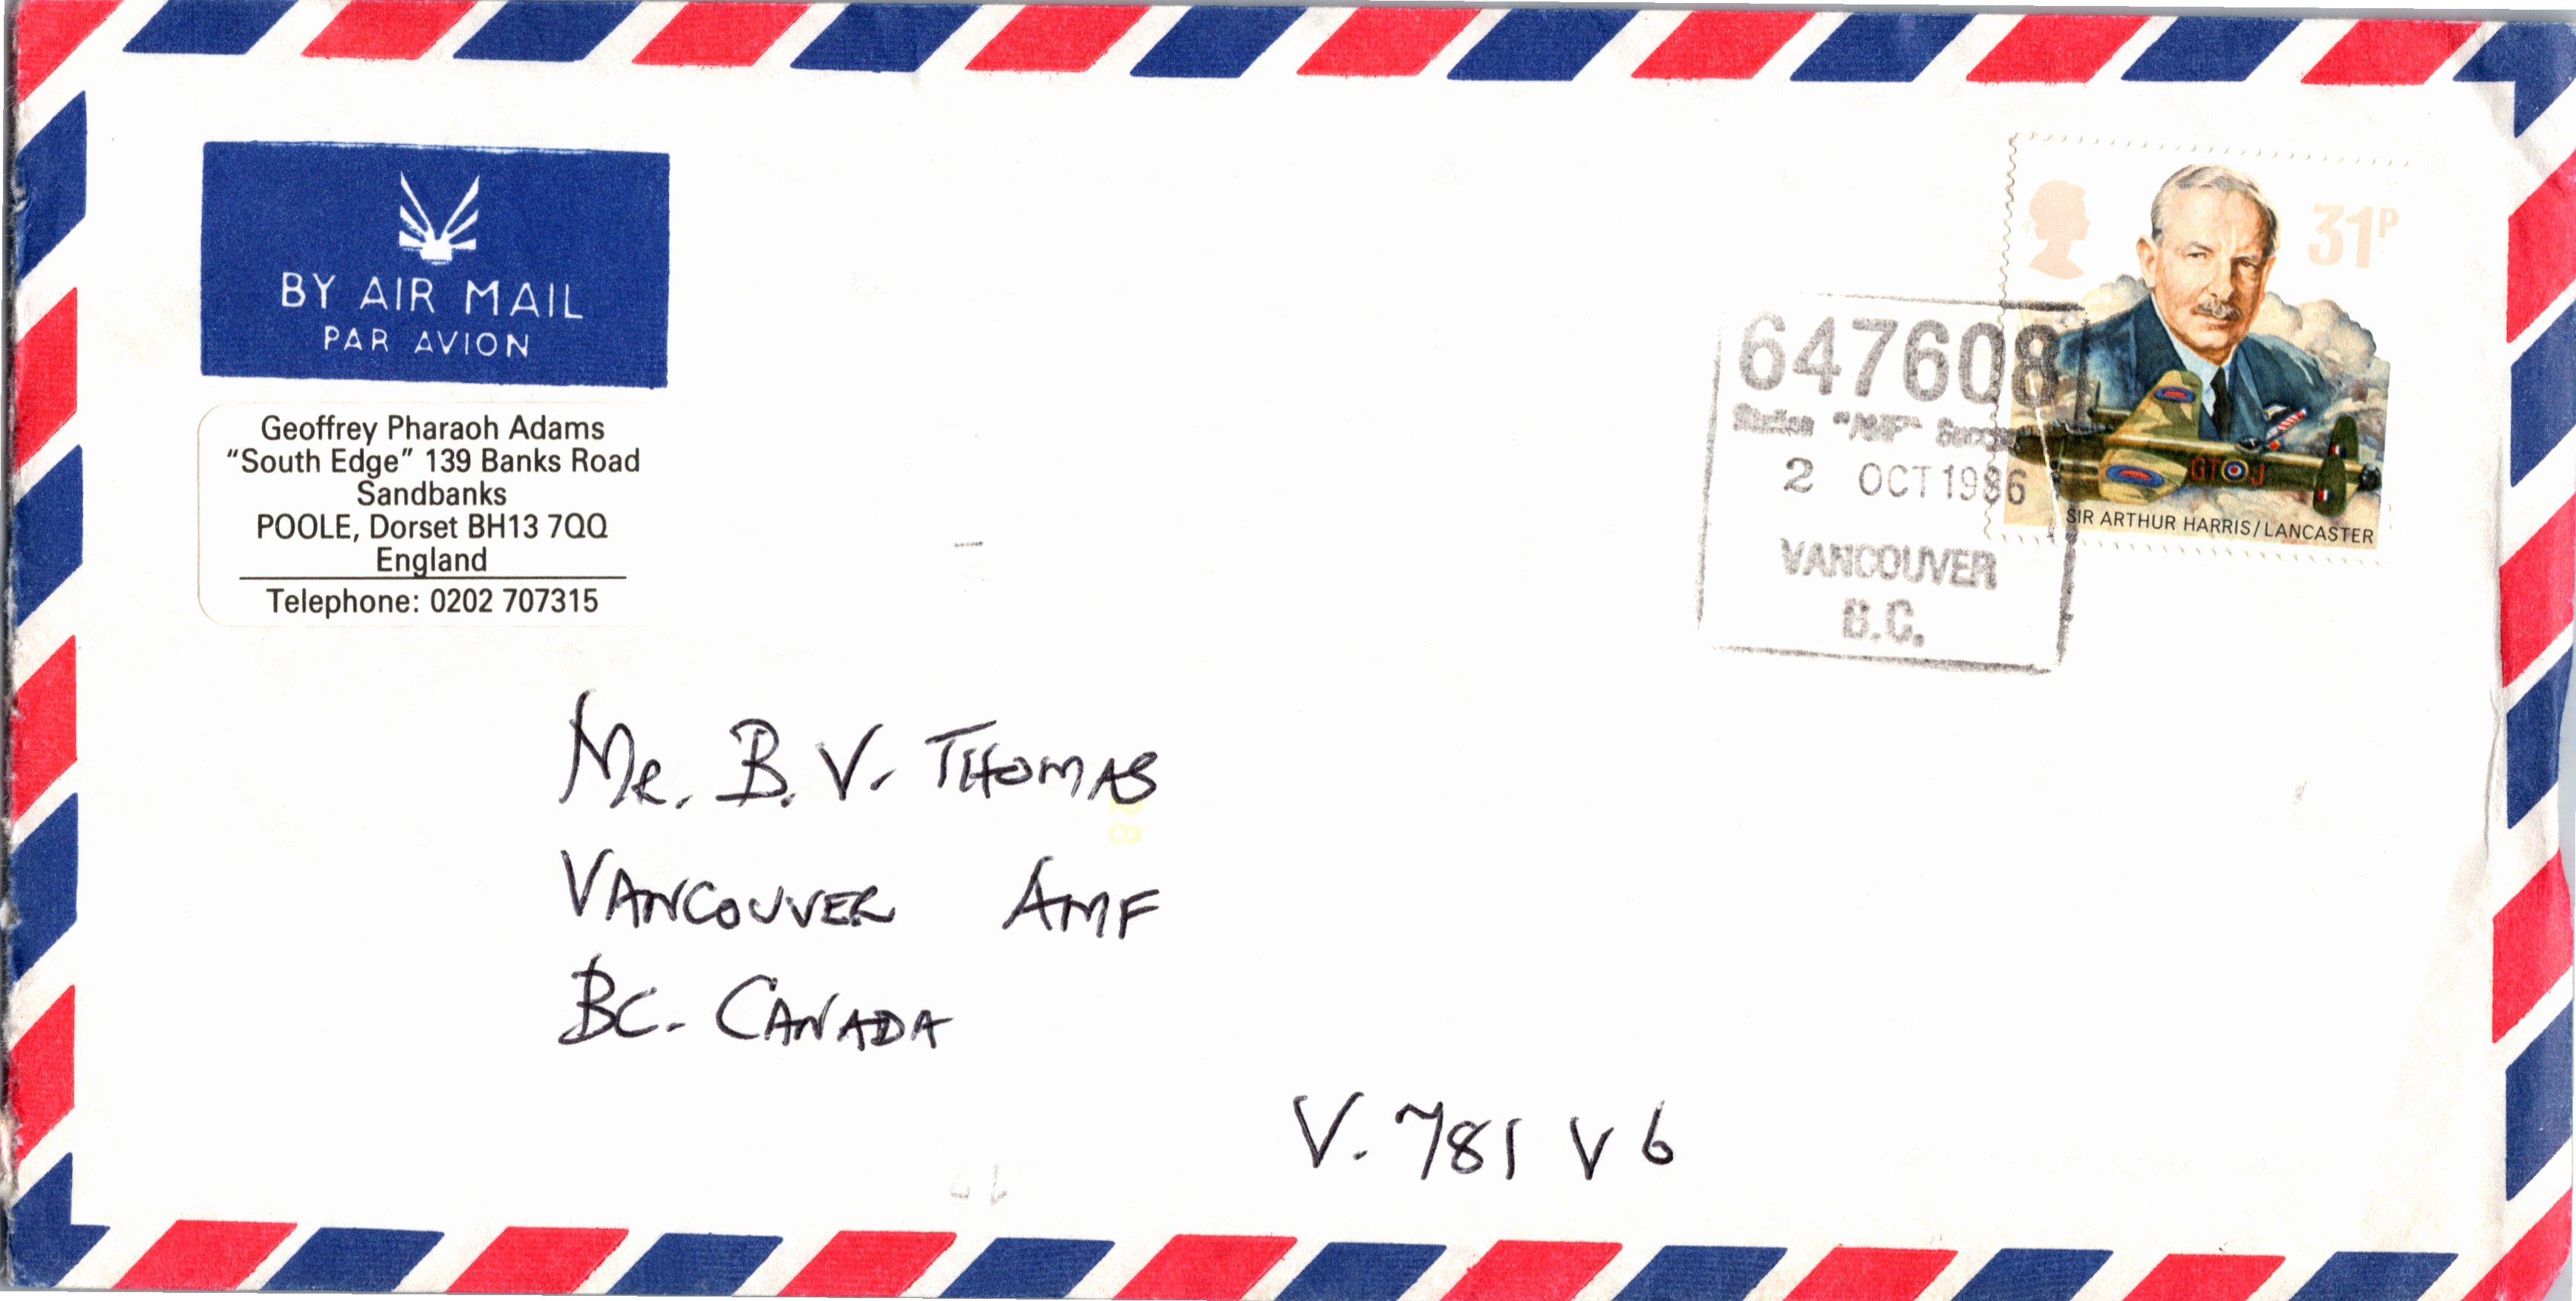 BY AIR MAIL
PAR AVION
Geoffrey Pharaoh Adams
“South Edge” 139 Banks Road
Sandbanks
POOLE, Dorset BH13 7QQ
England
Telephone: 0202 707315
31P
GT J
SIR ARTHUR HARRIS/LANCASTER
647608
Station "AMF"
2 OCT 1986
VANCOUVER
B.C.
Mr. B. V. THOMAS
VANCOUVER AMF
BC. CANADA
V. 781 V6